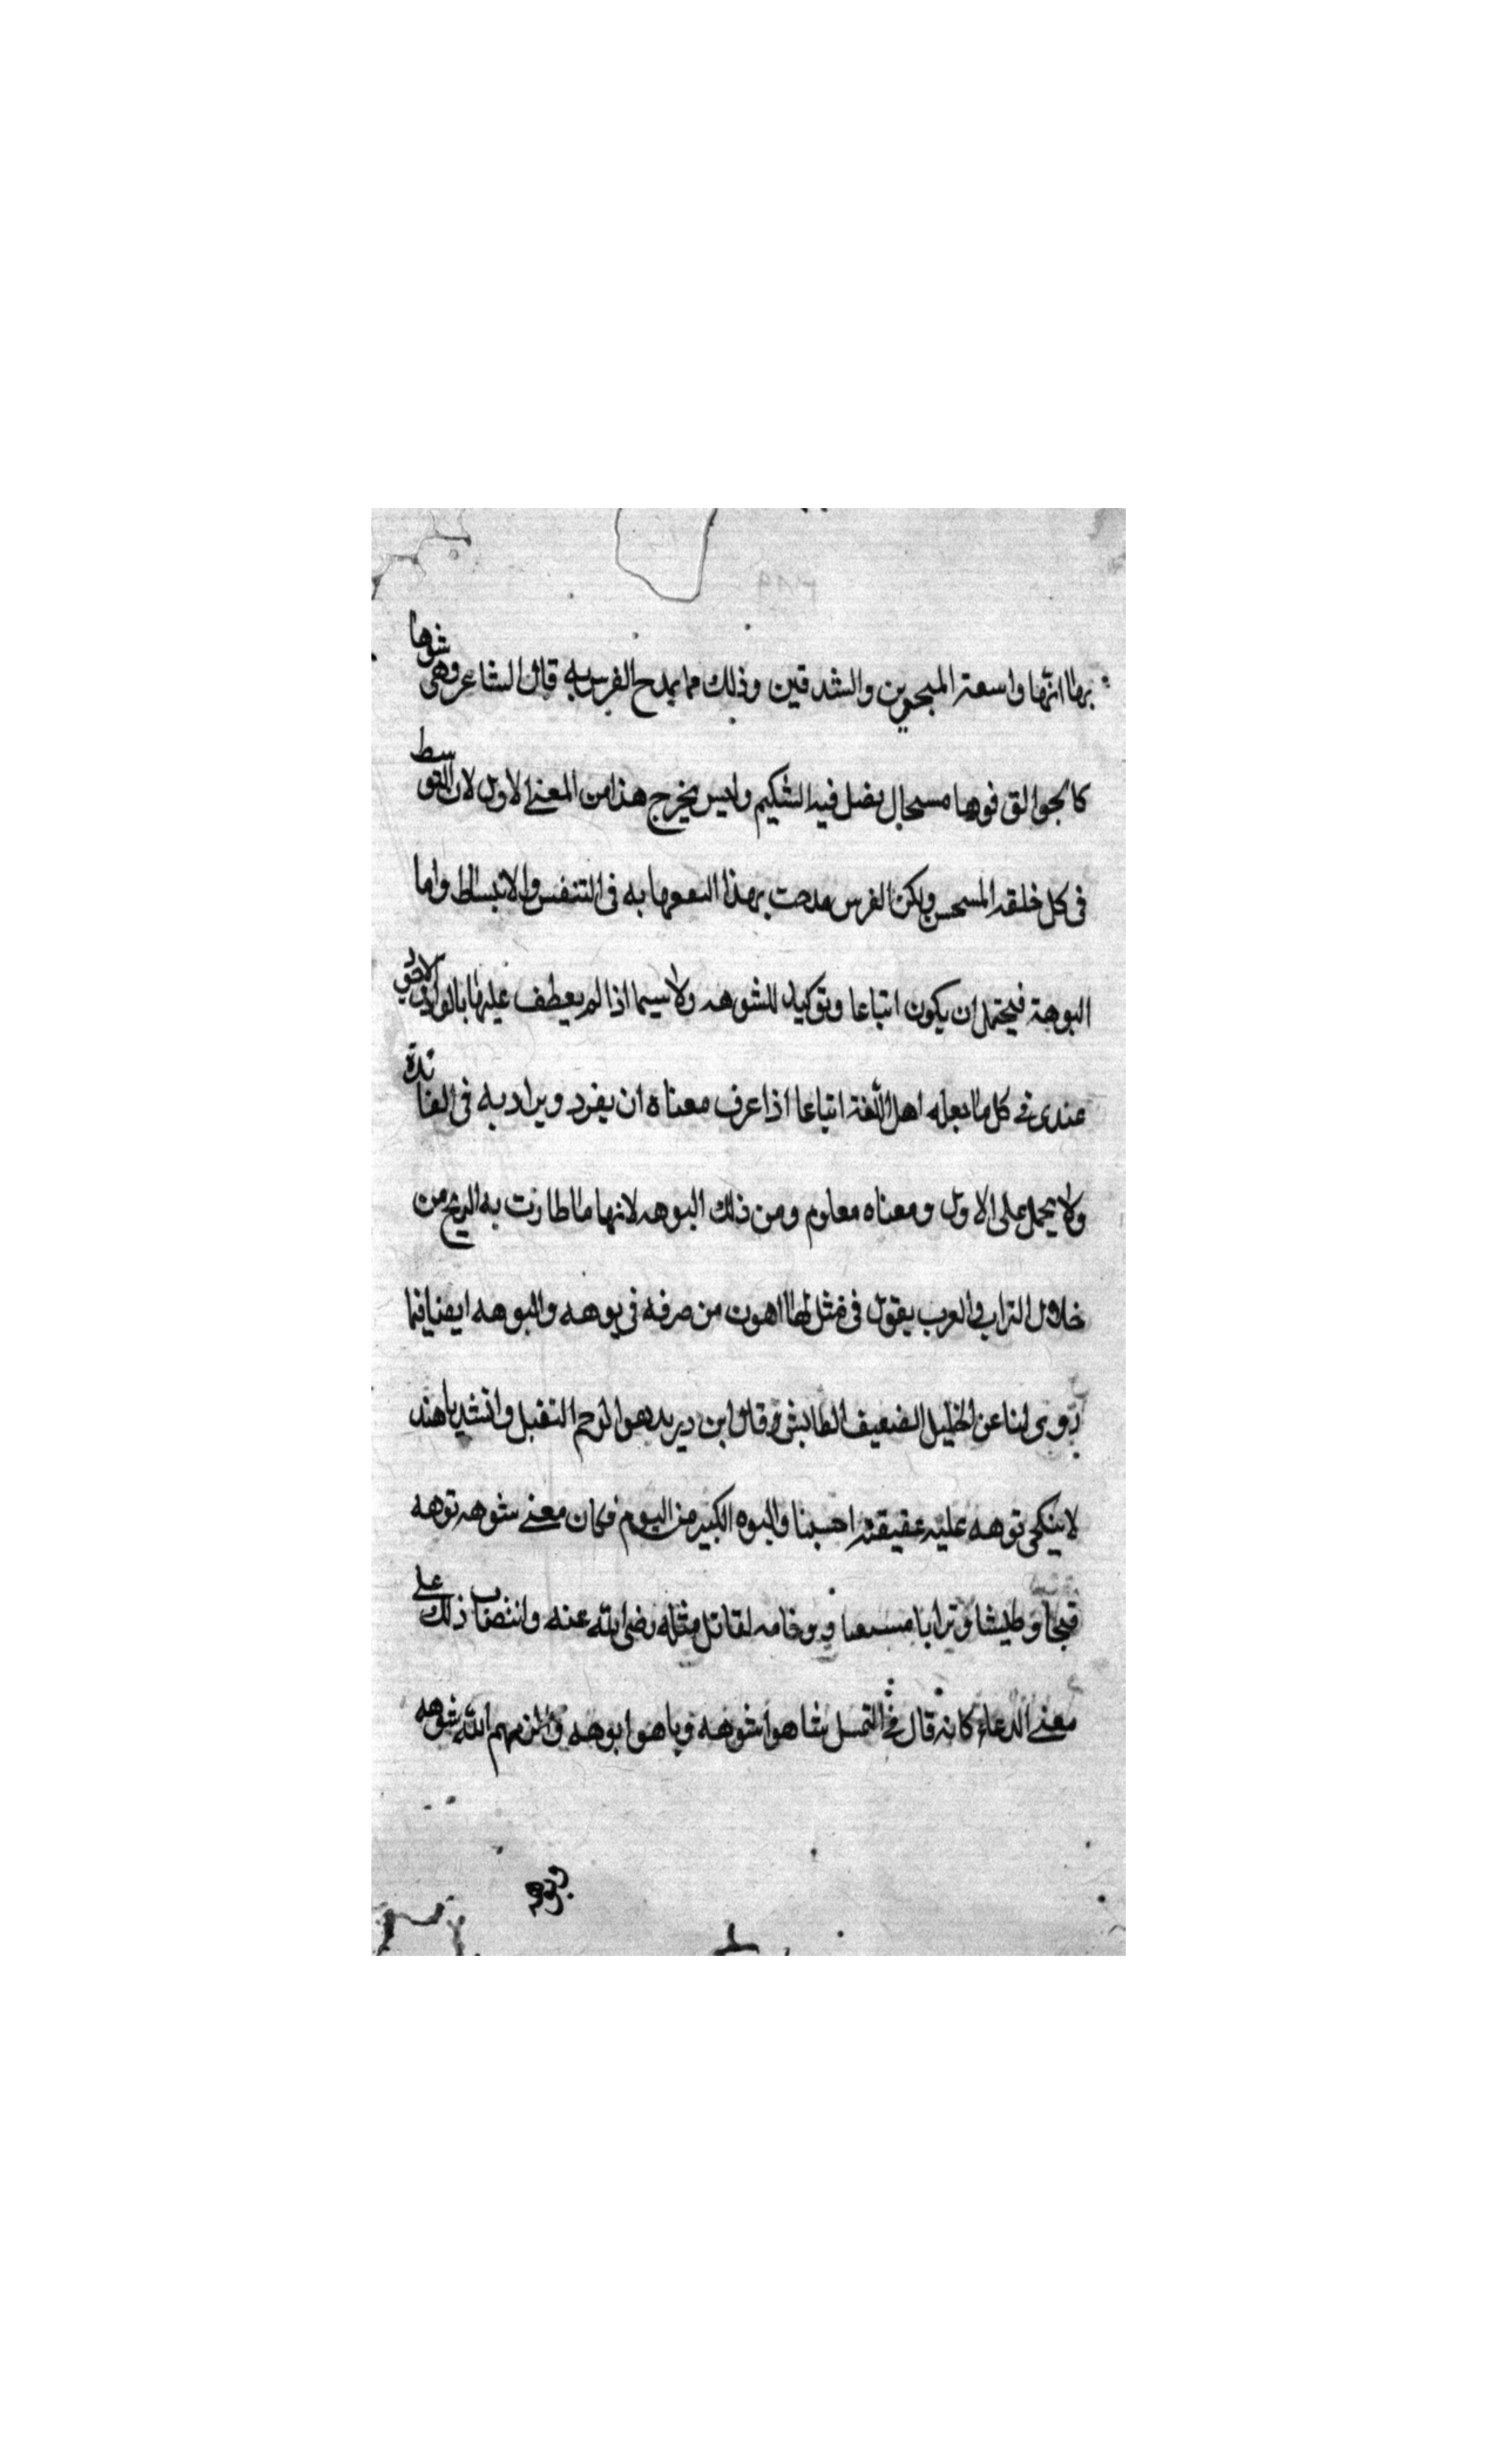 بها انها واسعة المبحرين والشدقين وذلك مما يمدح الفرس به قال الشاعر وهى شوها
كالجوالق فوها مستجال يضل فيه الشكيم وليس يخرج هذا من المعنى الاول لان التوسط
فى كل خلقة المستحسن ولكن الفرس مدحت بهذا به فى التنفس والانبساط واما
البوهة فيحتمل ان يكون اتباعا وتوكيدا للشوهه ولاسيما اذا لم يعطف عليها بالواو
عندى فى كل ما يجعله اهل اللغة اتباعا اذا عرف معناه ان يفرد ويراد به فى الفائدة
ولا يحمل على الاول ومعناه معلوم ومن ذلك البوهه لانها ما طارت به الريح من
خلال التراب والعرب يقول فى مثل لها اهون من صرفه فى بوهه والبوهه ايضا فيما
روى لنا عن الخليل الضعيف الطايش وقال ابن دريد هوا لوحم التقبل وانشد يا هند
لا ينكحى توهه عليه عقيقته احسبنا والبوه الكبير من البوم فكان معنى شوهه توهه
قبحا وطيشا وترابا وبوخامه لقاتل مثله رضى الله عنه وانتصاب ذلك على
معنى الدعاء كانه قال فى شاهوا شوهه وباهوا بوهه والزمهم الله شوهه